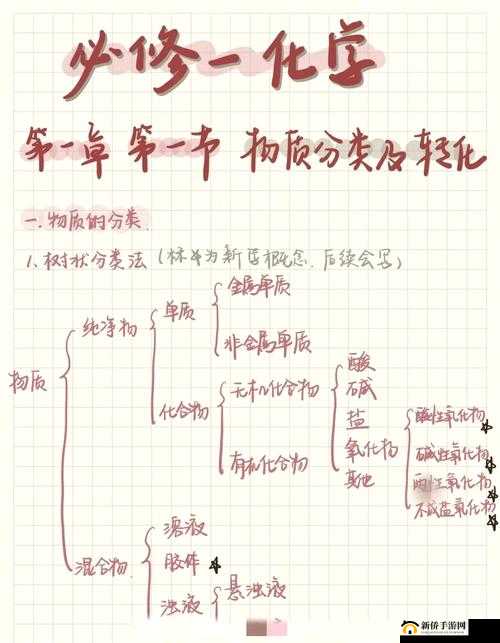 必修一化学
第一章 第一节 物质分类及转化
一.物质的分类
1.树状分类法（标☆为新学概念.后续会写）
物质
纯净物
单质
金属单质
非金属单质
化合物
无机化合物
酸
碱
盐
氧化物
酸性氧化物☆
碱性氧化物☆
两性氧化物☆
不成盐氧化物☆
其他
有机化合物
混合物
溶液
胶体☆
浊液
悬浊液
新侨手游网